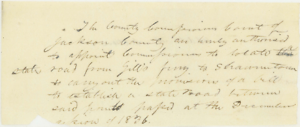 The County Commissioners Court of
Jackson County are only authorized
to appoint Commissioners to locate
state road from Gill's ferry to Shawneetown
to the provisions of a bill
to establish a state road between
said points passed at the December
session of 1836.